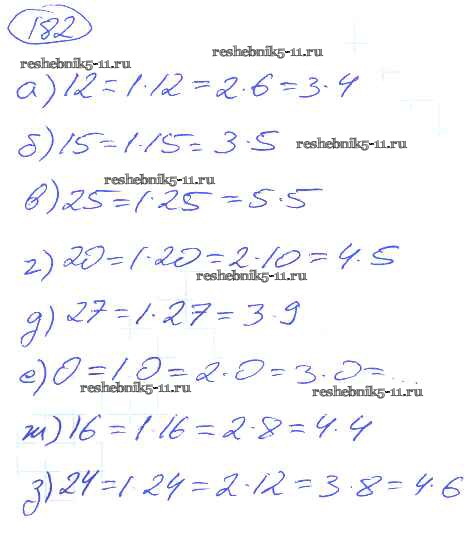 182
reshebnik5-11.ru
reshebnik5-11.ru
а) 12 = 1·12 = 2·6 = 3·4
б) 15 = 1·15 = 3·5 reshebnik5-11.ru
reshebnik5-11.ru
в) 25 = 1·25 = 5·5
г) 20 = 1·20 = 2·10 = 4·5
reshebnik5-11.ru
д) 27 = 1·27 = 3·9
е) 0 = 1·0 = 2·0 = 3·0 = ...
reshebnik5-11.ru
reshebnik5-11.ru
ж) 16 = 1·16 = 2·8 = 4·4
з) 24 = 1·24 = 2·12 = 3·8 = 4·6